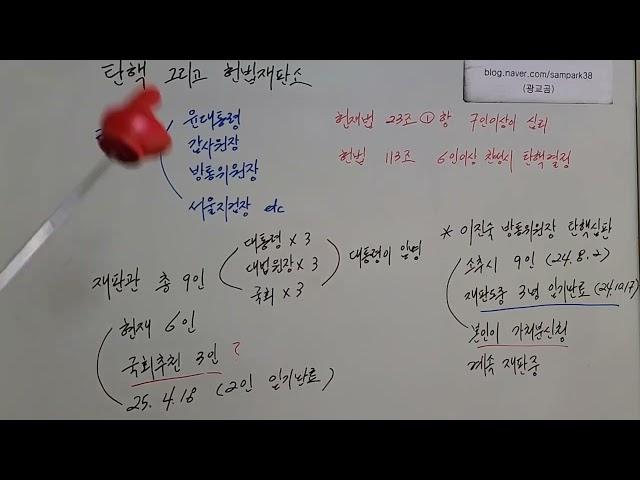 탄핵 그리고 헌법재판소
blog.naver.com/sampark38
(광교곰)
윤대통령
감사원장
방통위원장
서울지검장 etc
헌재법 23조 ①항 7인이상이 심리
헌법 113조 6인이상 찬성시 탄핵결정
재판관 총 9인
대통령 x 3
대법원장 x 3
국회 x 3
대통령이 임명
현재 6인
국회추천 3인 ?
25. 4. 18 (2인 임기만료)
* 이진숙 방통위원장 탄핵심판
소추시 9인 (24. 8. 2)
재판도중 3명 임기만료 (24.10.17)
본인이 가처분신청
계속 재판중